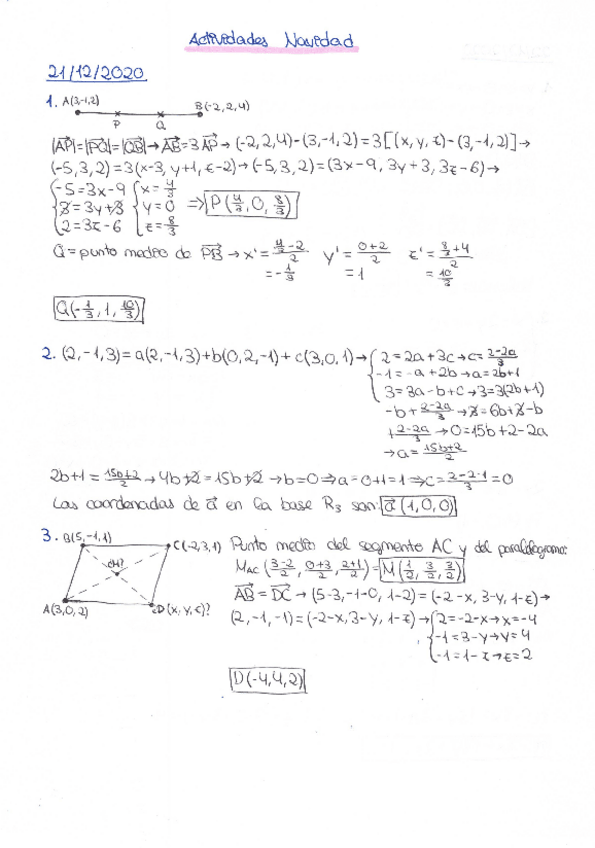 Actividades Navidad
21/12/2020
1. A(3,-1,2) P Q B(-2,2,4)
|AP|=|PQ|=|QB|→AB=3AP→(-2,2,4)-(3,-1,2)=3[(x,y,z)-(3,-1,2)]→
(-5,3,2)=3(x-3,y+1,z-2)→(-5,3,2)=(3x-9,3y+3,3z-6)→
{-5=3x-9 {x=4/3
3=3y+3 y=0 ⇒ P(4/3,0,8/3)
2=3z-6 z=8/3
Q=punto medio de PB→x'=(4/3-2)/2 y'=(0+2)/2 z'=(8/3+4)/2
=-1/3 =1 =10/3
Q(-1/3,1,10/3)
2. (2,-1,3)=a(2,-1,3)+b(0,2,-1)+c(3,0,1)→{2=2a+3c→c=(2-2a)/3
-1=-a+2b→a=2b+1
3=3a-b+c→3=3(2b+1)
-b+(2-2a)/3→3=6b+3-b
+(2-2a)/3→0=15b+2-2a
→a=(15b+2)/2
2b+1=(15b+2)/2→4b+2=15b+2→b=0⇒a=0+1=1⇒c=(2-2·1)/3=0
Las coordenadas de a en la base R3 son: a(1,0,0)
3. B(5,-1,1) C(-2,3,1) Punto medio del segmento AC y del paralelogramo:
¿M? M AC((3-2)/2,(0+3)/2,(2+1)/2)=M(1/2,3/2,3/2)
A(3,0,2) ¿D(x,y,z)? AB=DC→(5-3,-1-0,1-2)=(-2-x,3-y,1-z)→
(2,-1,-1)=(-2-x,3-y,1-z)→{2=-2-x→x=-4
-1=3-y→y=4
-1=1-z→z=2
D(-4,4,2)